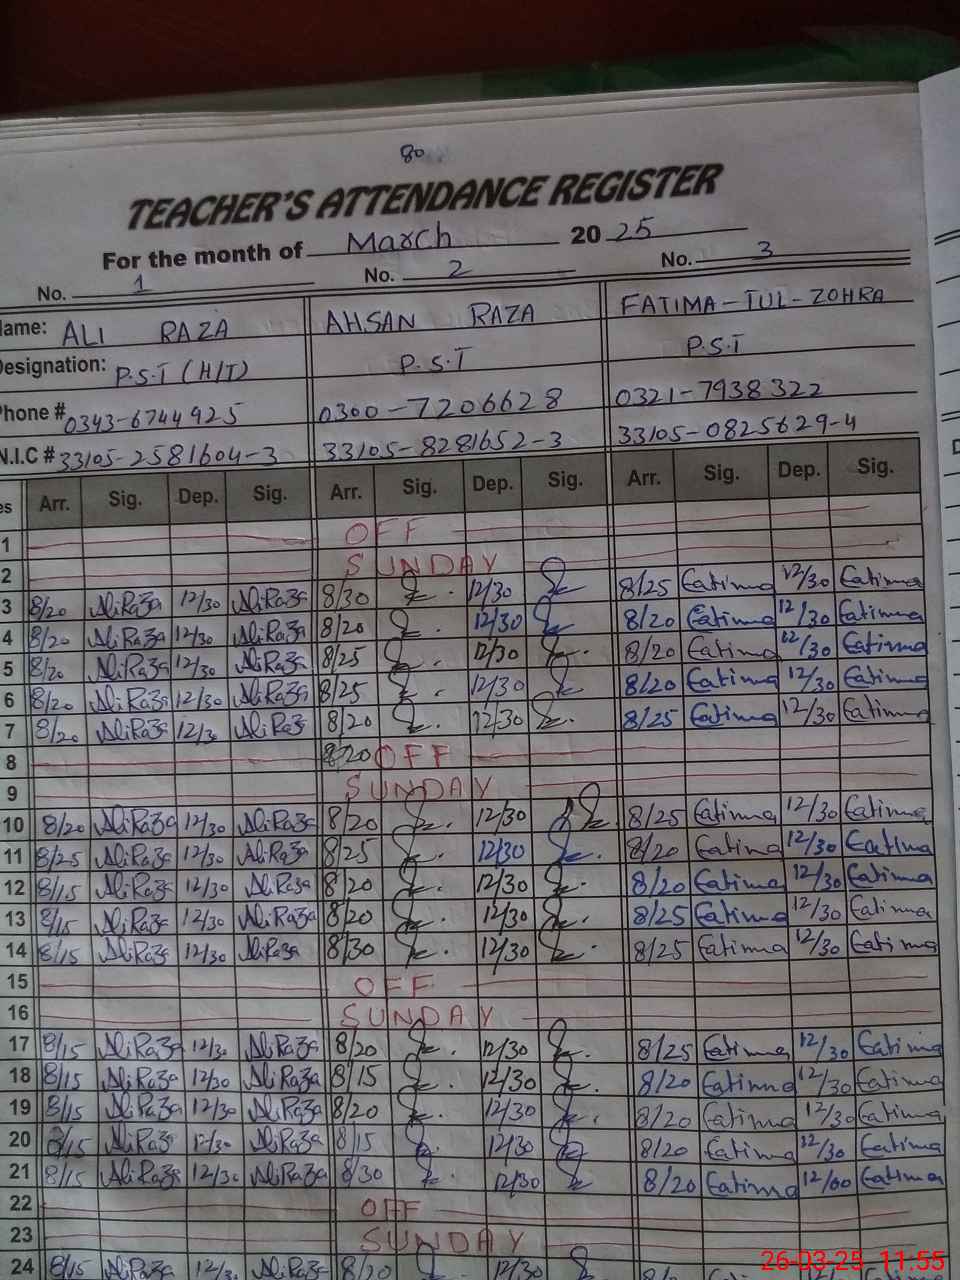 80
TEACHER'S ATTENDANCE REGISTER
For the month of March 2025
No. 1 No. 2 No. 3
Name: ALI RAZA AHSAN RAZA FATIMA-TUL-ZOHRA
Designation: P.S.T (H/T) P.S.T P.S.T
Phone # 0343-6744925 0300-7206628 0321-7938322
N.I.C # 33105-2581604-3 33105-8281652-3 33105-0825629-4
es Arr. Sig. Dep. Sig. Arr. Sig. Dep. Sig. Arr. Sig. Dep. Sig.
1 OFF
2 SUNDAY
3 8/20 AliRaza 12/30 AliRaza 8/30 12/30 8/25 Fatima 12/30 Fatima
4 8/20 AliRaza 12/30 AliRaza 8/20 12/30 8/20 Fatima 12/30 Fatima
5 8/20 AliRaza 12/30 AliRaza 8/25 12/30 8/20 Fatima 12/30 Fatima
6 8/20 AliRaza 12/30 AliRaza 8/25 12/30 8/20 Fatima 12/30 Fatima
7 8/20 AliRaza 12/3 AliRaza 8/20 12/30 8/25 Fatima 12/30 Fatima
8 8/20 OFF
9 SUNDAY
10 8/20 AliRaza 12/30 AliRaza 8/20 12/30 8/25 Fatima 12/30 Fatima
11 8/25 AliRaza 12/30 AliRaza 8/25 12/30 8/20 Fatima 12/30 Fatima
12 8/15 AliRaza 12/30 AliRaza 8/20 12/30 8/20 Fatima 12/30 Fatima
13 8/15 AliRaza 12/30 AliRaza 8/20 12/30 8/25 Fatima 12/30 Fatima
14 8/15 AliRaza 12/30 AliRaza 8/30 12/30 8/25 Fatima 12/30 Fatima
15 OFF
16 SUNDAY
17 8/15 AliRaza 12/30 AliRaza 8/20 12/30 8/25 Fatima 12/30 Fatima
18 8/15 AliRaza 12/30 AliRaza 8/15 12/30 8/20 Fatima 12/30 Fatima
19 8/15 AliRaza 12/30 AliRaza 8/20 12/30 8/20 Fatima 12/30 Fatima
20 8/15 AliRaza 12/30 AliRaza 8/15 12/30 8/20 Fatima 12/30 Fatima
21 8/15 AliRaza 12/30 AliRaza 8/30 12/30 8/20 Fatima 12/00 Fatima
22 OFF
23 SUNDAY
24 8/15 AliRaza 12/30 AliRaza 8/20 12/30
26-03-25 11:55